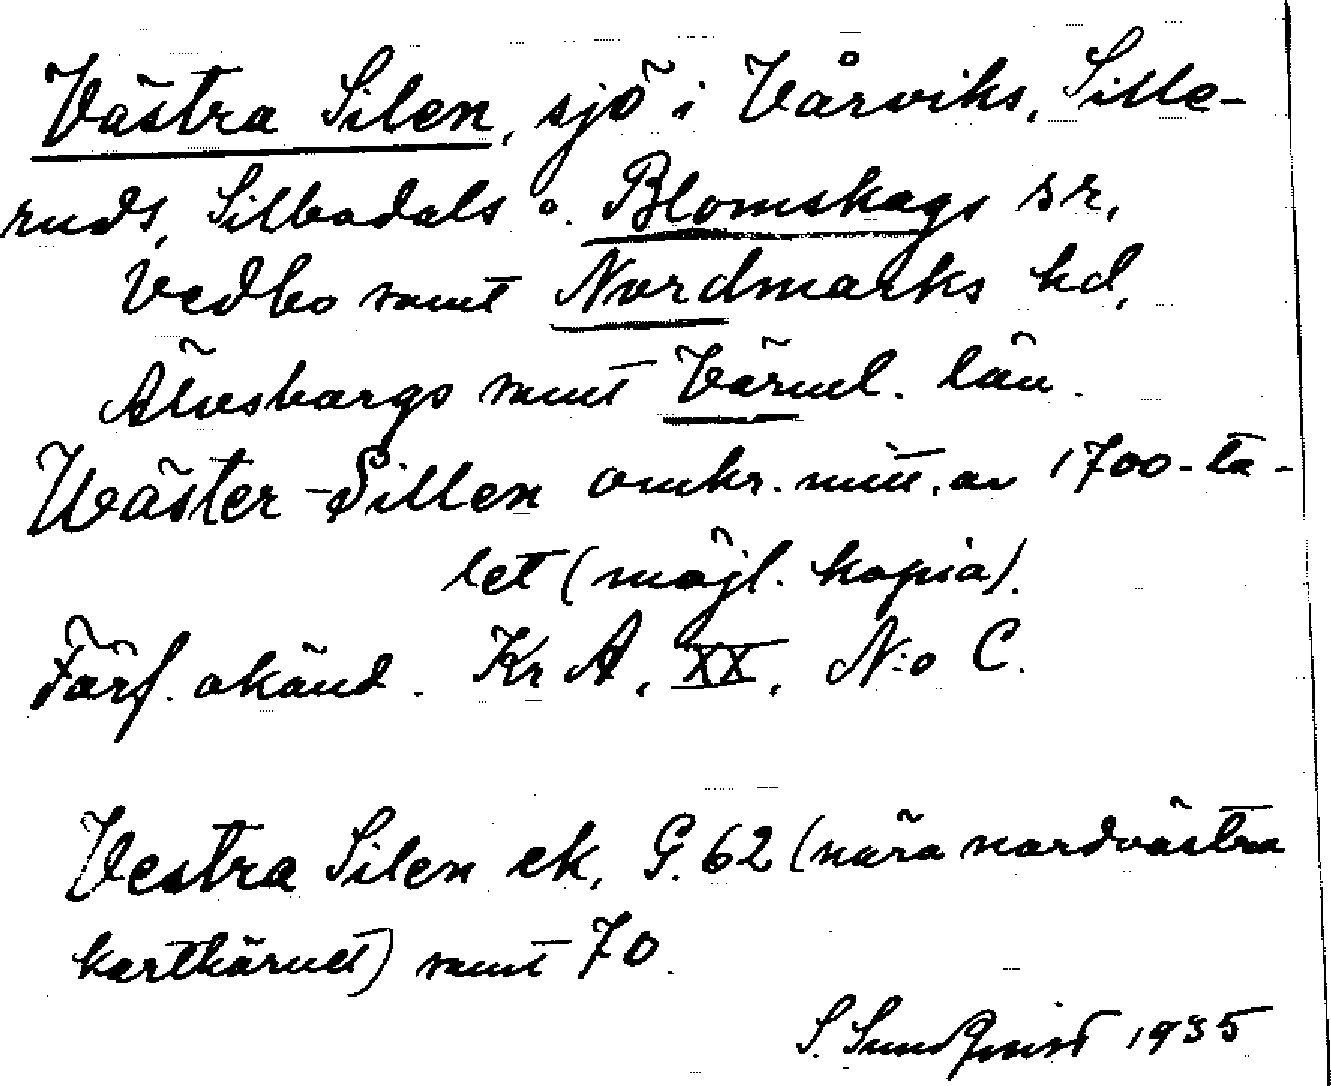 Västra Silen, sjö i Vårviks, Sille-
ruds, Silbodals o. Blomskogs sr,
Vedbo samt Nordmarks hd,
Älvsborgs samt Värml. län.
Wäster-Sillen omkr. mitt. av 1700-ta-
let (möjl. kopia).
Förf. okänd. Kr A, XX, N:o C.
Vestra Silen ek. G. 62 (nära nordvästra
karthörnet) samt 70.
S. Sundqvist 1935